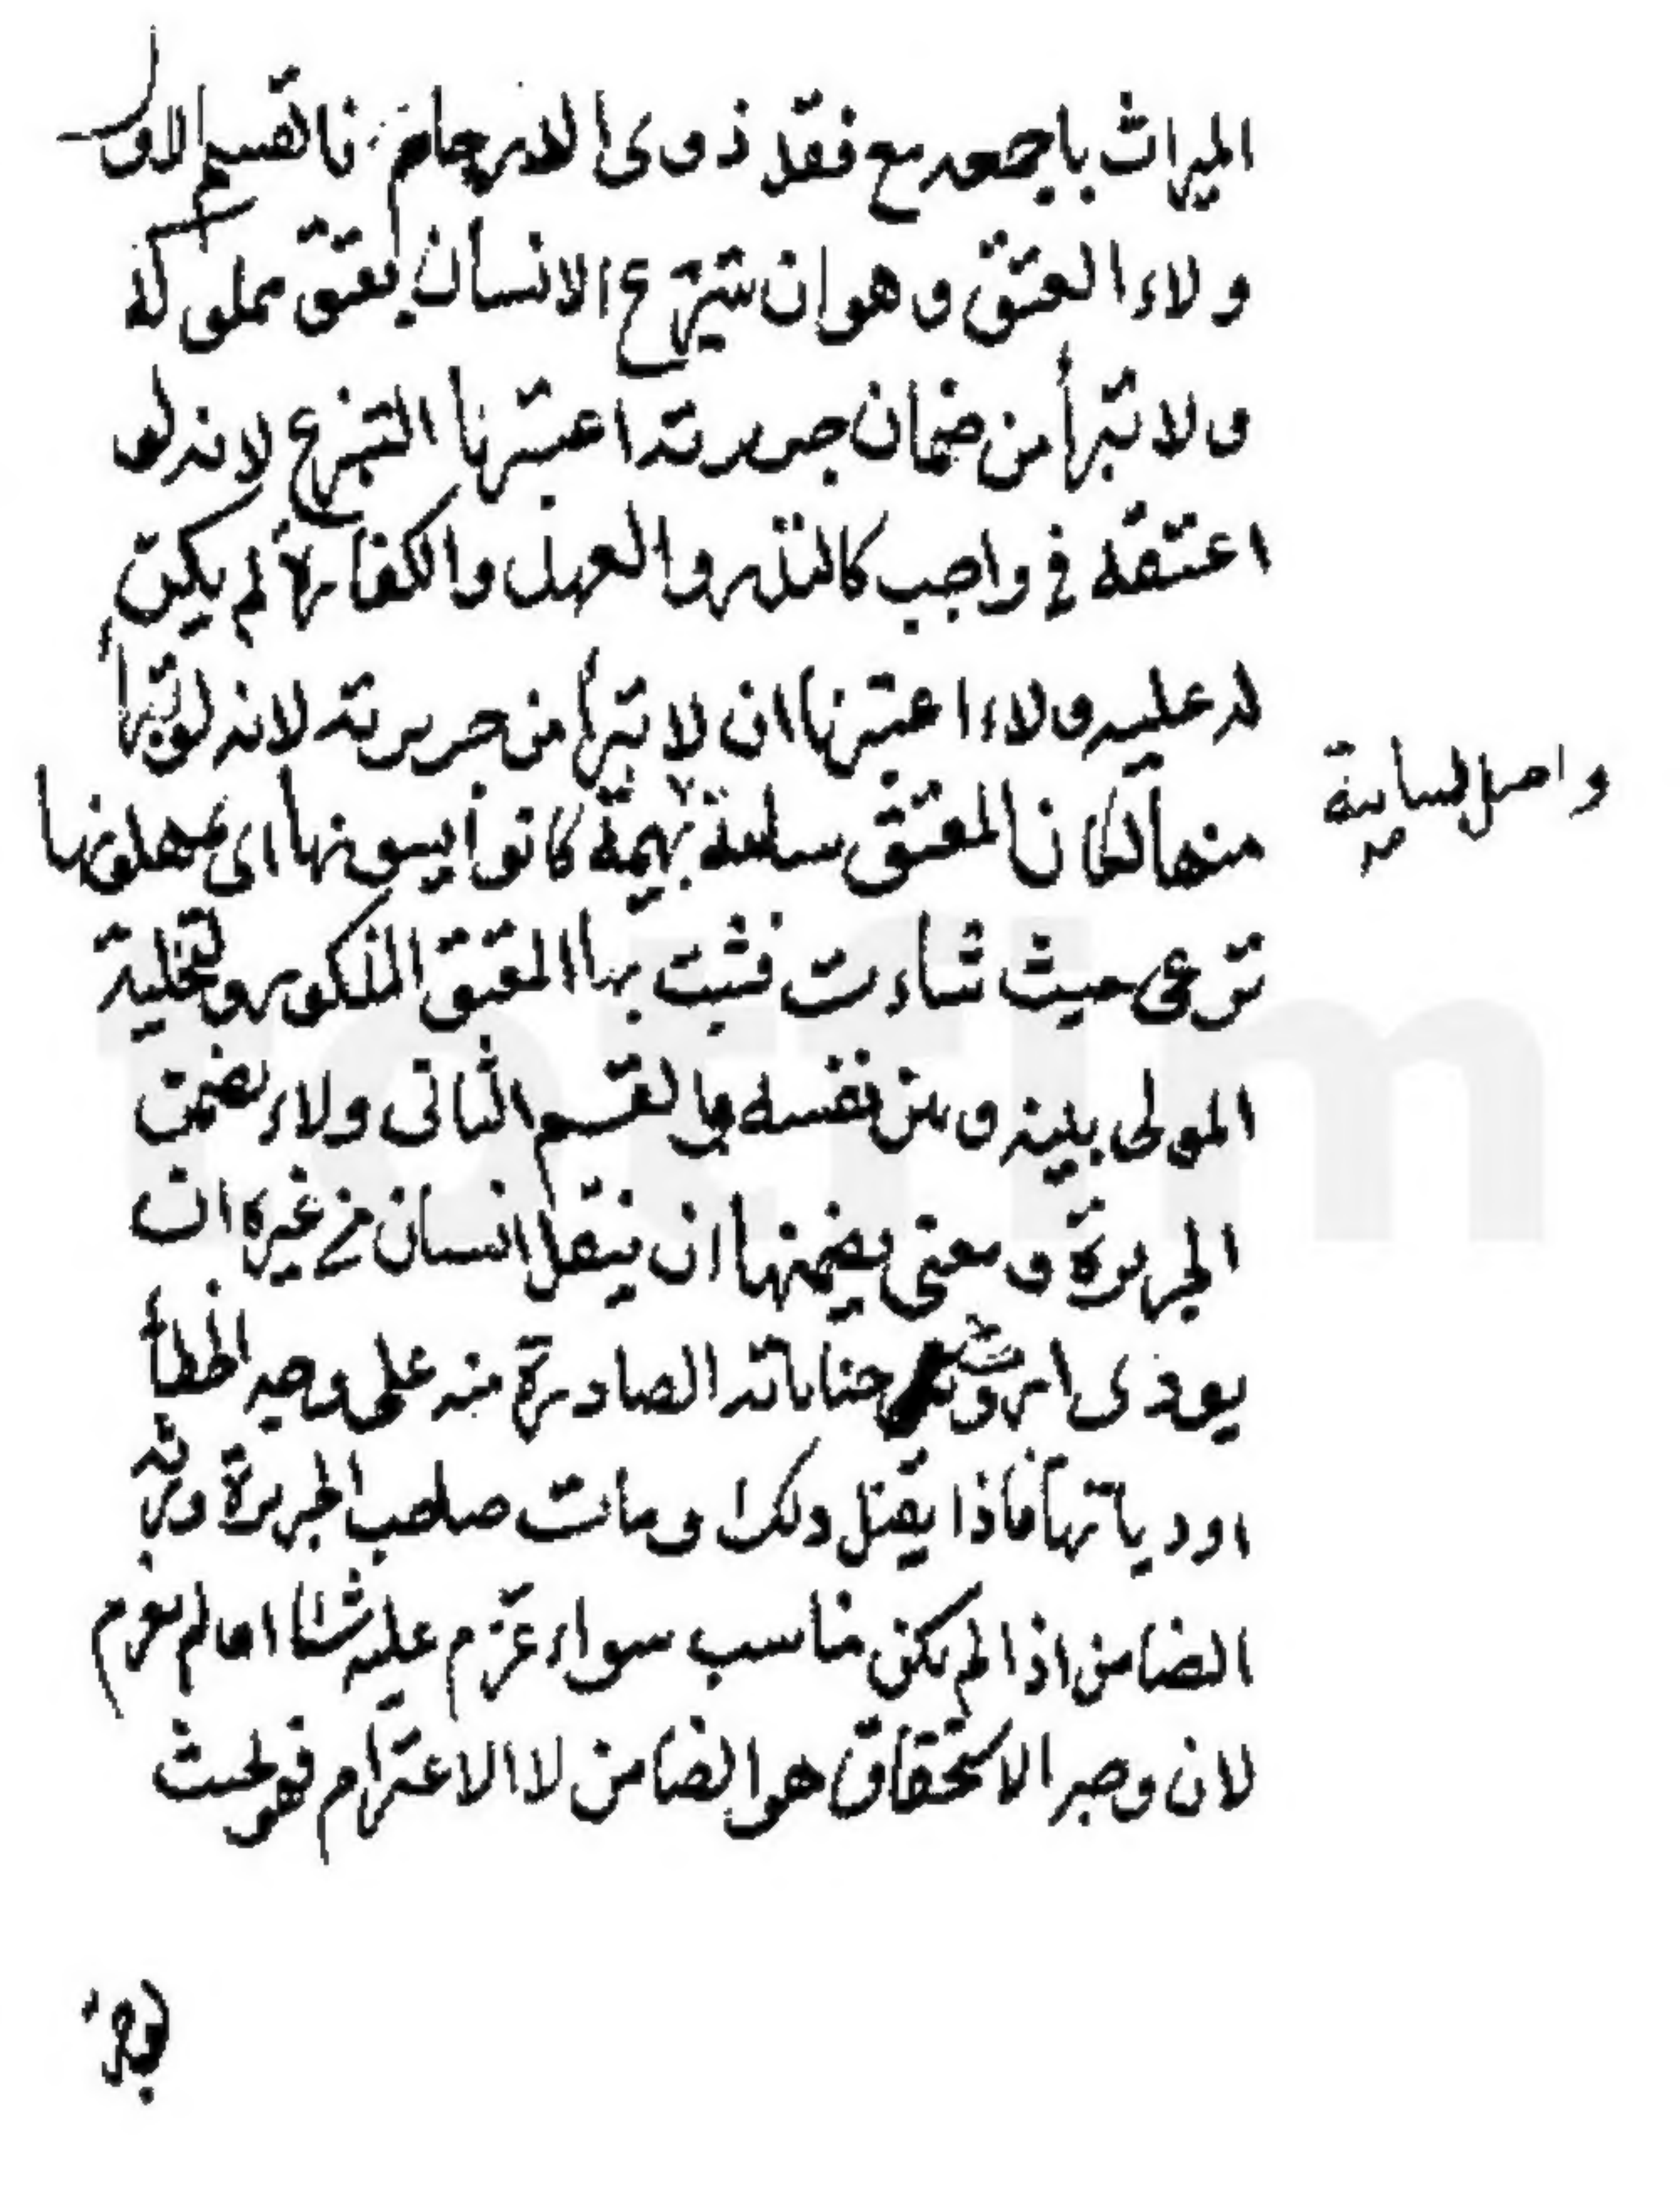 الميراث باجمعه مع فقد ذوى الارحام فالقسم الاول
ولاء العتق وهو ان يتبرع الانسان بعتق مملوكه
ولا تبرأ من ضمان جريرته اعتبرنا التبرع لانه لو
اعتقه في واجب كالنذر والعهد والكفارة لم يكن
له عليه ولاء اعتبرنا ان لا تبرأ من جريرته لانه لو تبرأ
منها لكان المعتق بهيمة كانوا يسيبونها اى يهملونها
واصل السايبة
ترعى حيث شاءت فشبت بها المعتق المذكور وتخلية
المولى بينه وبين نفسه والقسم الثانى ولاء تضمن
الجريرة ومعنى يضمنها ان ينقل انسان من غيره ان
يودى اروش جناياته الصادرة منه على وجه الخطأ
او دياتها فاذا يقبل ذلك ومات صاحب الجريرة ورثه
الضامن اذا لم يكن مناسب سواء غرم عليه شيئا ام لم يغرم
لان وجه الاستحقاق هو الضامن لا الاغترام فهو لحيث